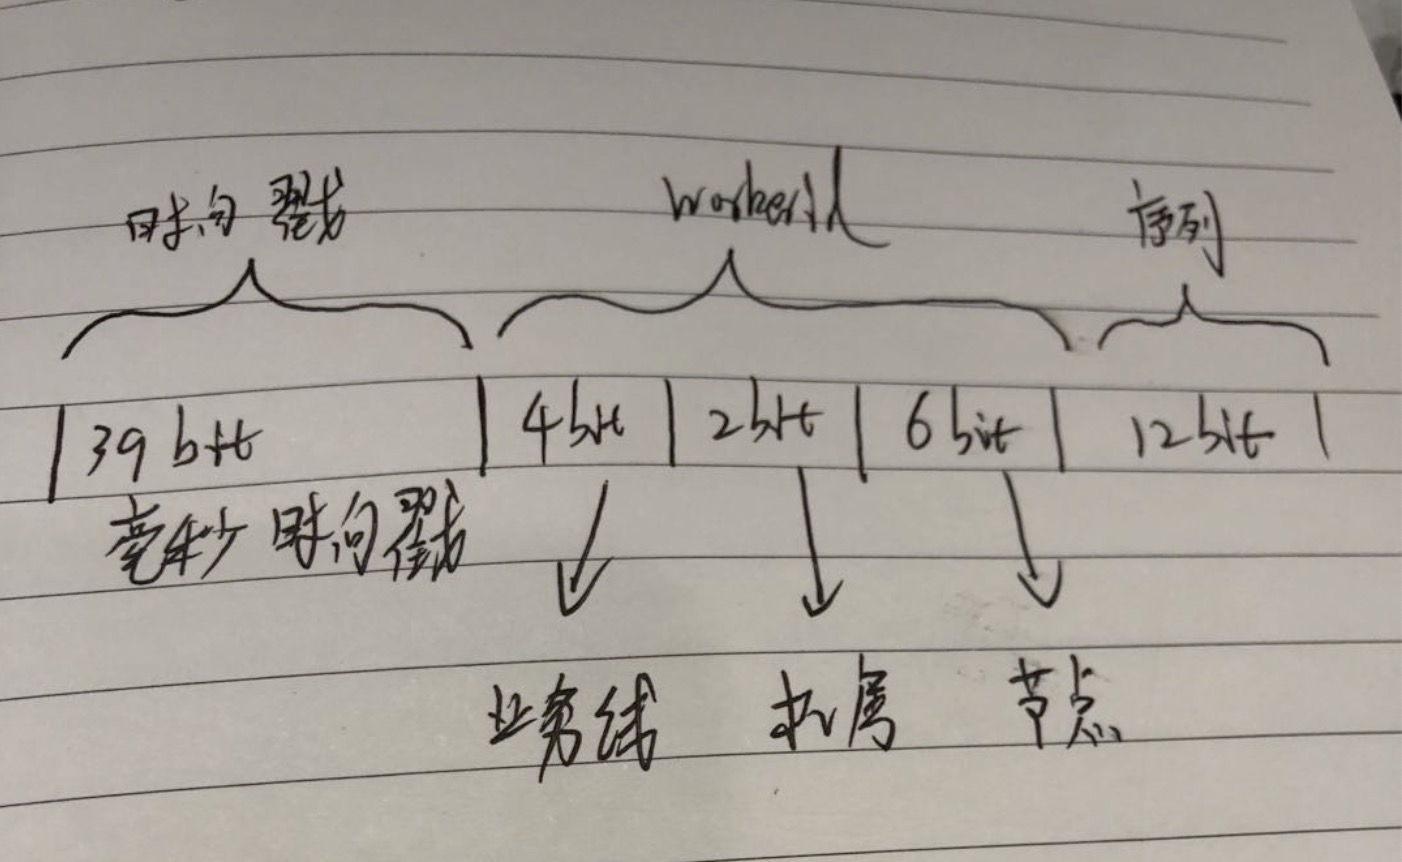 时间戳 workerId 序列
39bit 4bit 2bit 6bit 12bit
毫秒时间戳
业务线 机房 节点